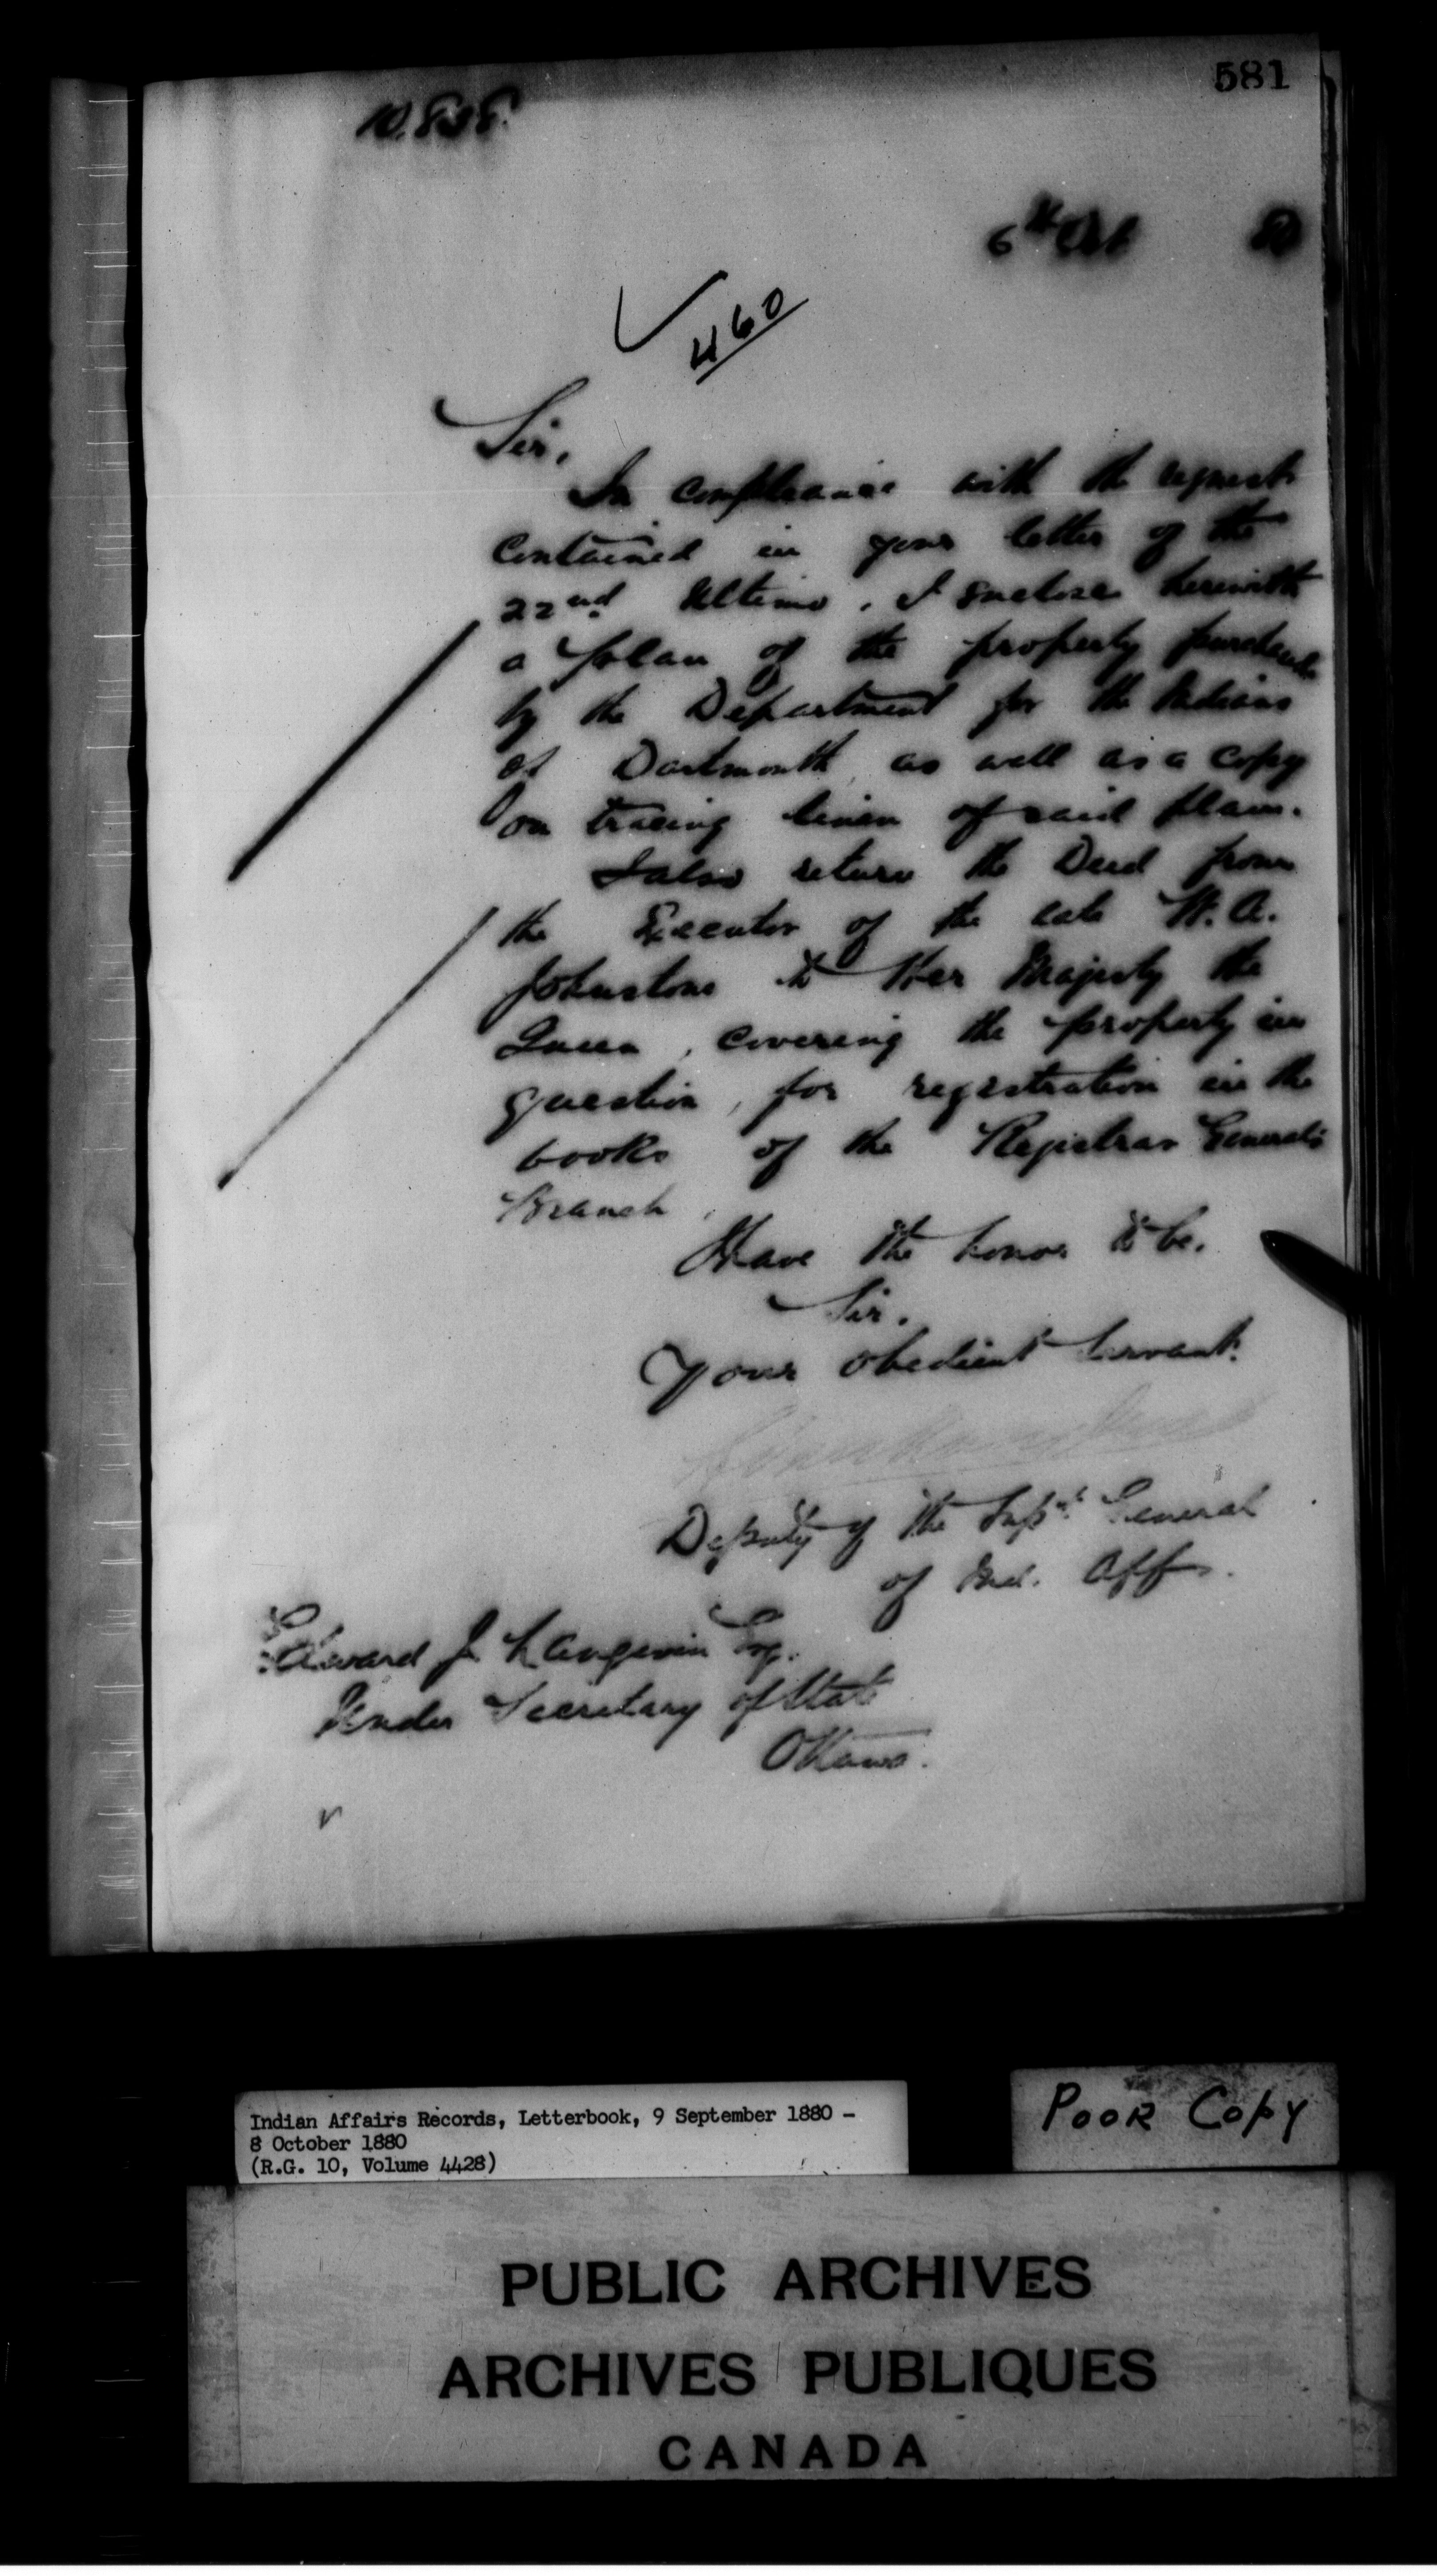 581
10,838.
6th Oct 80
460
Sir,
In compliance with the request
contained in your letter of the
22nd Ultimo, I enclose herewith
a plan of the property purchased
by the Department for the Indians
at Dartmouth, as well as a copy
on tracing linen of said plan.
I also return the Deed from
the Executor of the late W. A.
Johnstone to Her Majesty the
Queen, covering the property in
question, for registration in the
books of the Registrar General's
Branch,
Have the honor to be,
Sir,
Your obedient Servant.
Deputy of the Supt General
of Ind. Affs.
Edward J. Langevin Esq.
Under Secretary of State
Ottawa.
Indian Affairs Records, Letterbook, 9 September 1880 –
8 October 1880
(R.G. 10, Volume 4428)
POOR COPY
PUBLIC ARCHIVES
ARCHIVES PUBLIQUES
CANADA